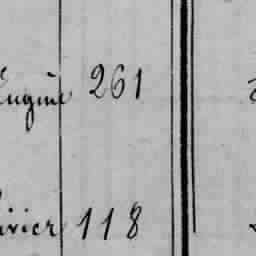 Eugène 261
ivier 118